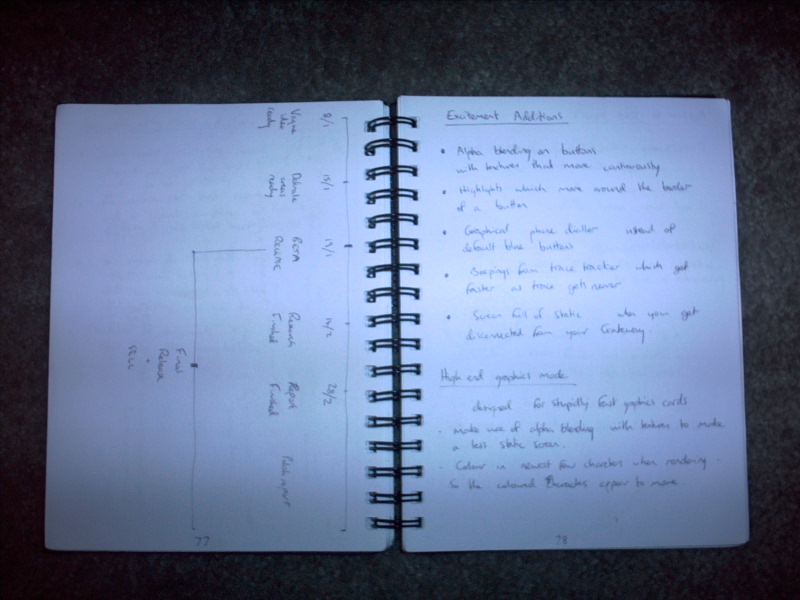 8/1
Vague
idea
ready
15/1
Debrute
areas
ready
19/1
BETA
RELEASE
14/2
Research
Finished
28/2
Report
Finished
Final
Release
77
Excitement Additions
• Alpha blending on buttons
with textures that move continuously
• Highlights which move around the border
of a button
• Graphical phone dialler instead of
default blue buttons
• Beepings from trace tracker which get
faster as trace gets nearer
• Screen full of static when your get
disconnected from your Gateway.
High end graphics mode
designed for stupidly fast graphics cards
- Make use of alpha blending with textures to make
a less static screen.
- Colour in newest few characters when rendering.
So the coloured characters appear to move.
78